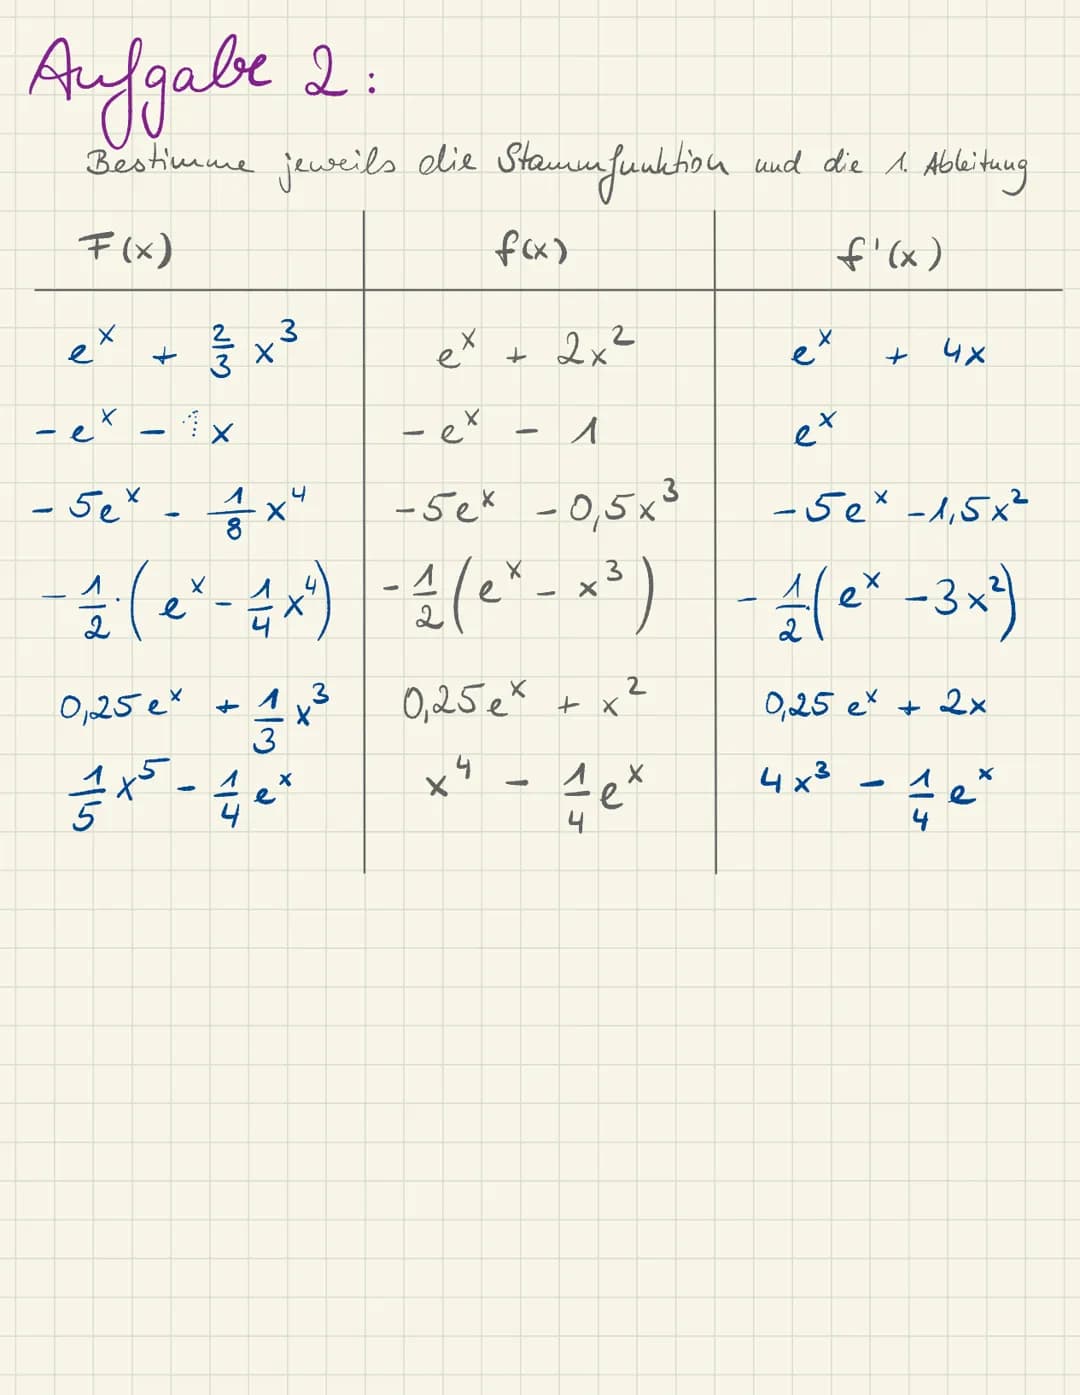 Aufgabe 2:
Bestimme jeweils die Stammfunktion und die 1. Ableitung
F(x) f(x) f'(x)
eˣ + 2/3 x³ eˣ + 2x² eˣ + 4x
-eˣ - 1x -eˣ - 1 eˣ
-5eˣ - 1/8 x⁴ -5eˣ - 0,5x³ -5eˣ - 1,5x²
-1/2·(eˣ - 1/4 x⁴) -1/2(eˣ - x³) -1/2·(eˣ - 3x²)
0,25eˣ + 1/3 x³ 0,25eˣ + x² 0,25 eˣ + 2x
1/5 x⁵ - 1/4 eˣ x⁴ - 1/4 eˣ 4x³ - 1/4 eˣ